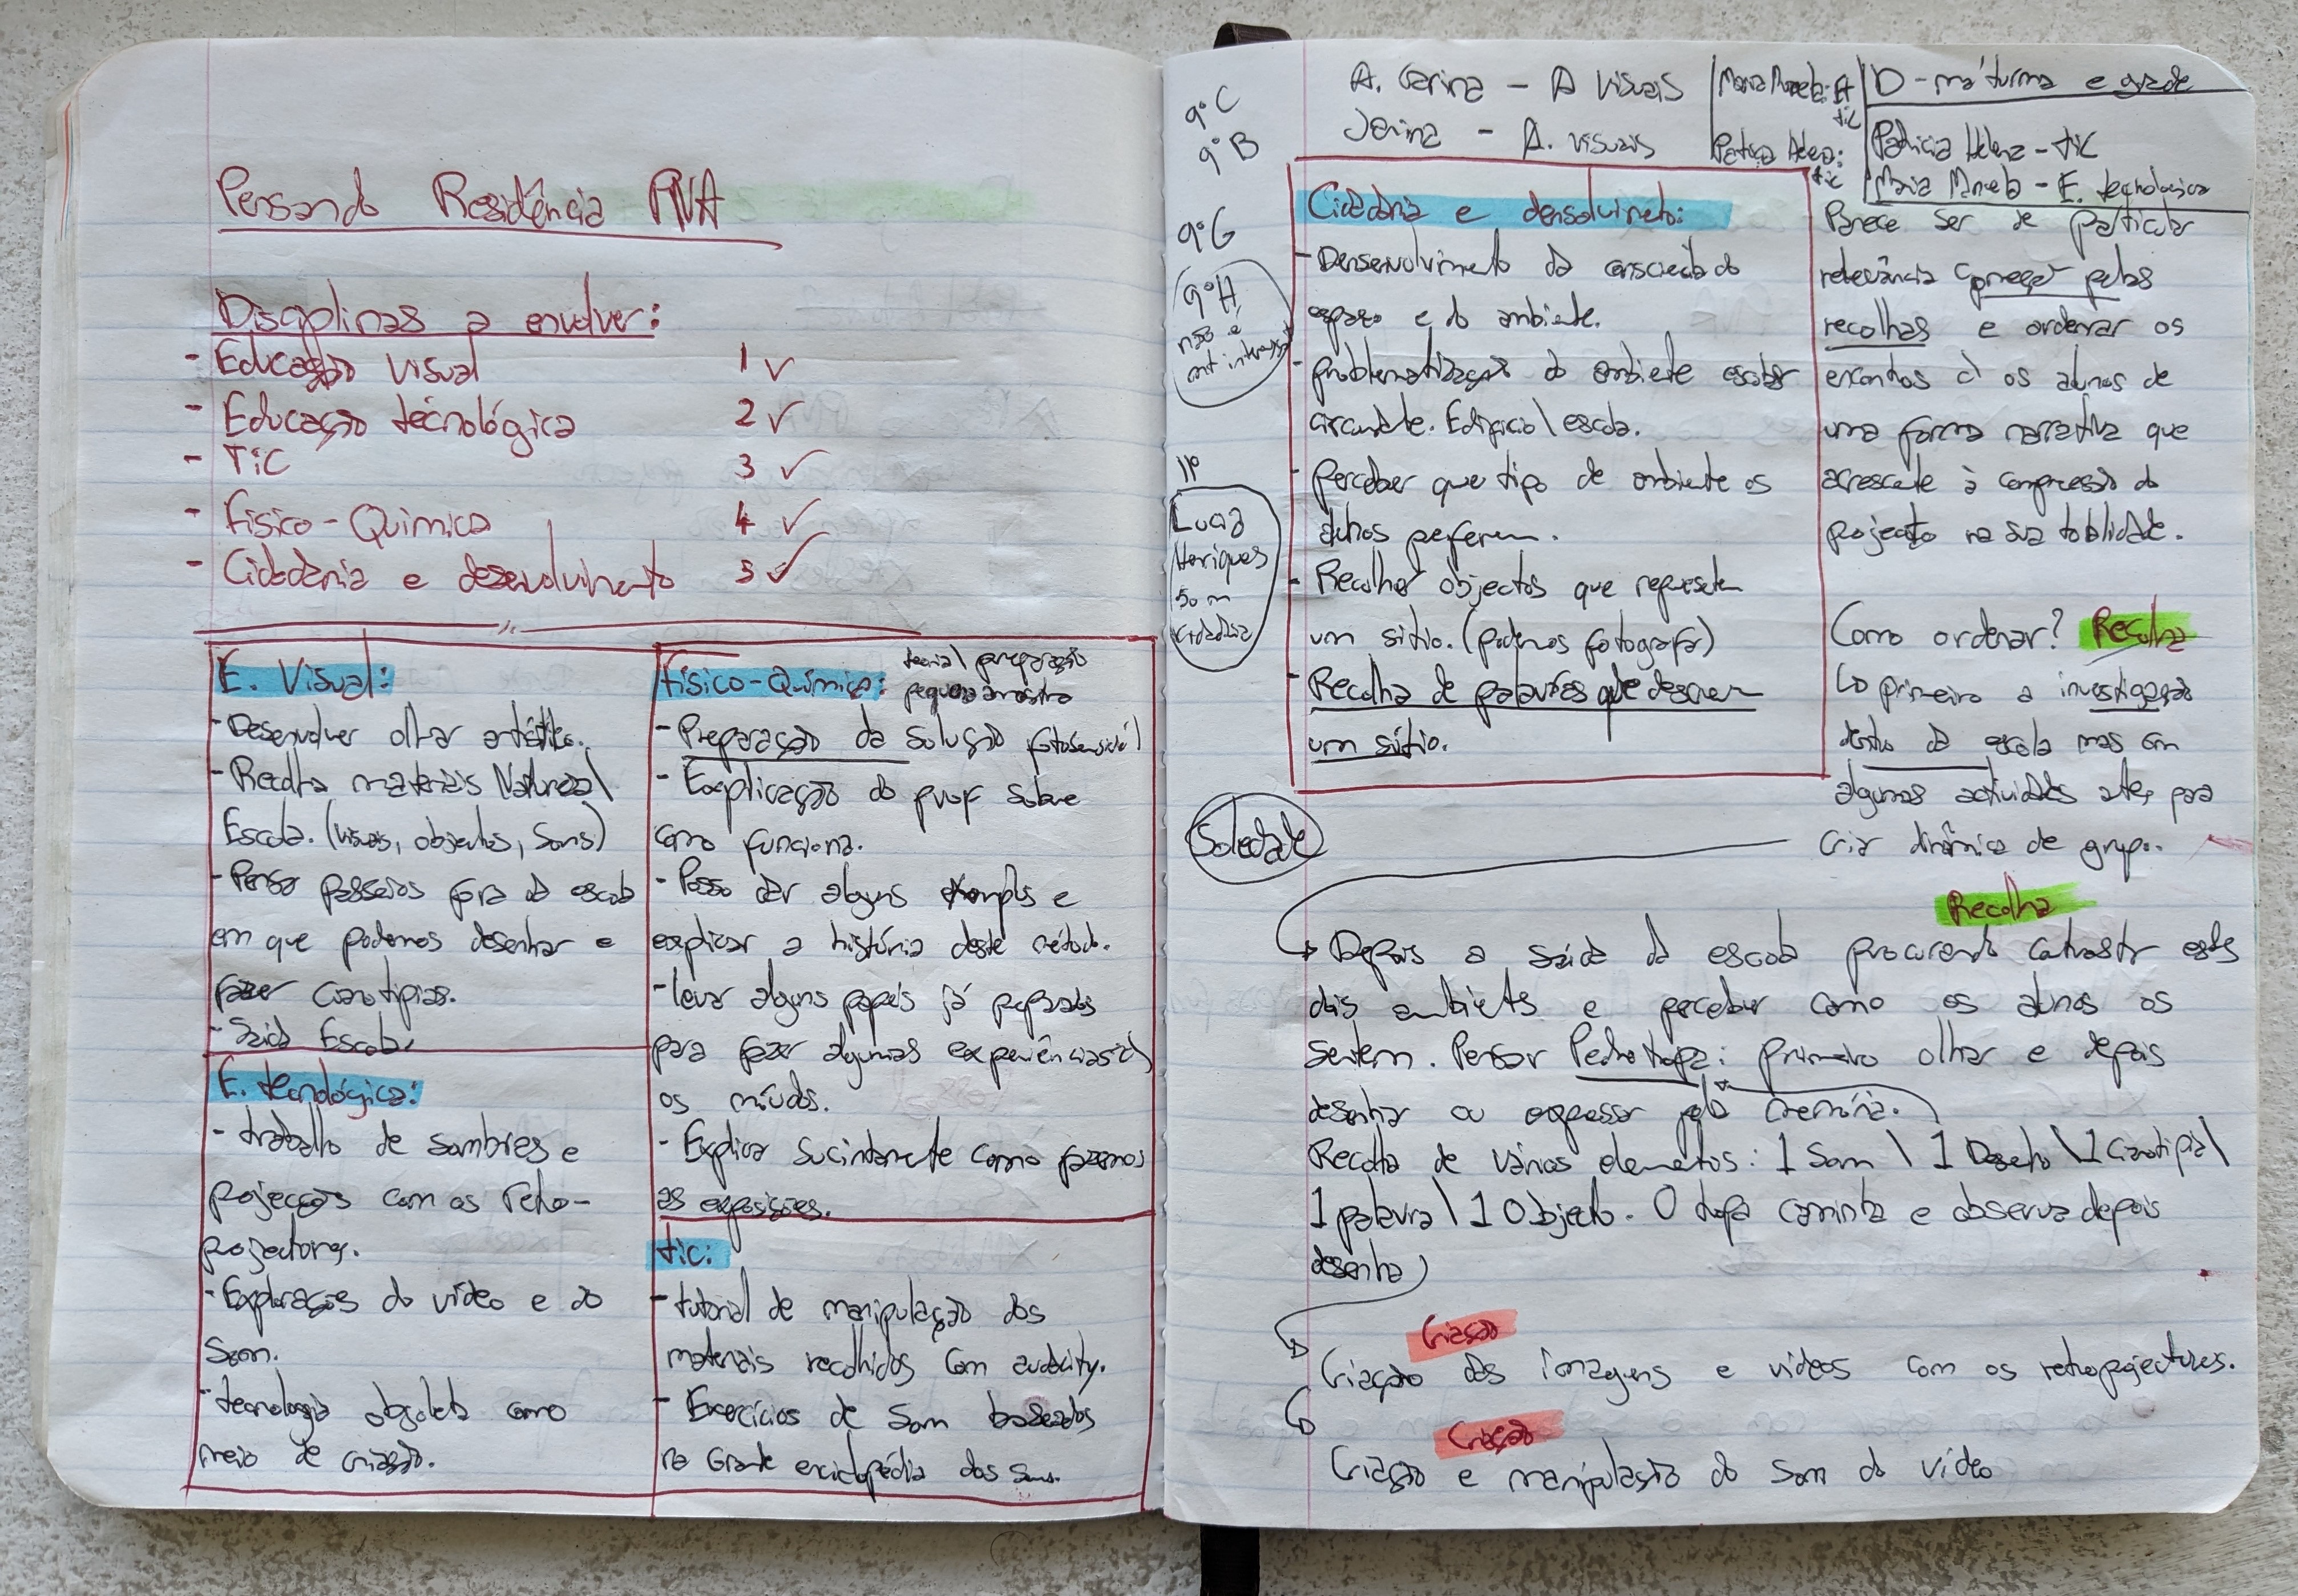 Pensando Residência PNA
Disciplinas a envolver:
- Educação visual 1 ✓
- Educação técnológica 2 ✓
- TiC 3 ✓
- Físico-Quimica 4 ✓
- Cidadania e desenvolvimento 5 ✓
E. Visual:
- Desenvolver olhar artístico.
- Recolha materiais Natureza\
Escola. (visuais, objectos, Sons)
- Pensar passeios fora da escola
em que podemos desenhar e
fazer cianotipias.
- Saída Escola
E. tecnológica:
- trabalho de sombras e
projecções com os retro-
projectores.
- Explorações do vídeo e do
Som.
- tecnologia obsoleta como
meio de criação.
Físico-Química: teoria\ preparação
pequena amostra
- Preparação da solução fotosensível
- Explicação do prof sobre
como funciona.
- Posso dar alguns exemplos e
explicar a história deste método.
- levar alguns papéis já preparados
para fazer algumas experiências c\
os miúdos.
- Explicar sucintamente como fazemos
as exposições.
tic:
- tutorial de manipulação dos
materiais recolhidos com audacity.
- Exercícios de Som baseados
na Grande enciclopédia dos sons.
9ºC
9ºB
9ºG
9ºH
não é
mt interessante
11º
Lucia
Henriques
50 m
cidadania
A. Carina - A visuais
Joana - A. visuais
D - má turma e grande
Patricia Helena - tic
Maria Manuela - E. tecnologica
Cidadania e densolvimeto:
- Densenvolvimento da consciência do
espaço e do ambiente.
- problematização do ambiente escolar
circundate. Edificio\ escola.
- perceber que tipo de ambiente os
alunos preferem.
- Recolher objectos que representem
um sitio. (podemos fotografar)
- Recolha de palavras que descrevem
um sitio.
Parece ser de particular
relevância começar pelas
recolhas e ordenar os
encontros c\ os alunos de
uma forma narrativa que
acrescente à compreensão do
projecto na sua totalidade.
Como ordenar? Recolha
Lo primeiro a investigação
dentro da escola mas com
algumas actividades antes para
criar dinâmica de grupo.
Soledade
Recolha
Depois a saída da escola procurando contrastar estes
dois ambientes e perceber como os alunos os
sentem. Pensar Pedro tropa: primeiro olhar e depois
desenhar ou expressar pela memória.
Recolha de vários elementos: 1 Som \ 1 Desenho \ 1 Cianotipia \
1 palavra \ 1 Objecto. O tropa caminha e observa depois
desenha)
Criação
Criação das imagens e vídeos com os retroprojectores.
Criação
Criação e manipulação do som do vídeo